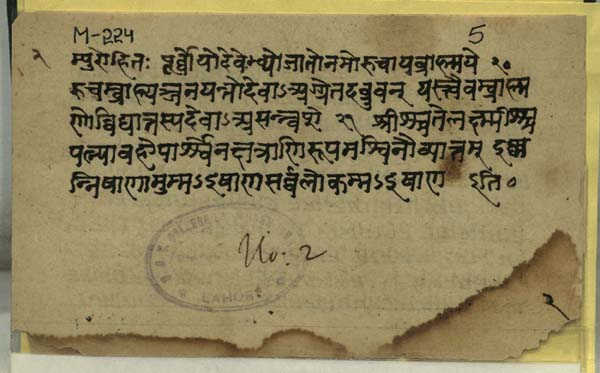 M-224 5
२
म्पुरोहितः पूर्व्वोयोदेवेभ्योजातोनमोरुचायब्राह्मये २०
रुचम्ब्राह्म्यञ्जनयन्तोदेवाऽअग्रेतदब्रुवन् यस्त्वैवम्ब्राह्म
णोव्विद्यात्तस्यदेवाऽअसन्न्वशे २१ श्रीश्चतेलक्ष्मीश्च
पत्न्यावहोपार्श्वेनक्षत्राणिरूपमश्विनौव्यात्तम् इष्ण
न्निषाणामुम्मऽइषाणसर्व्वलोकम्मऽइषाण इति०
No. 2
LAHORE
२